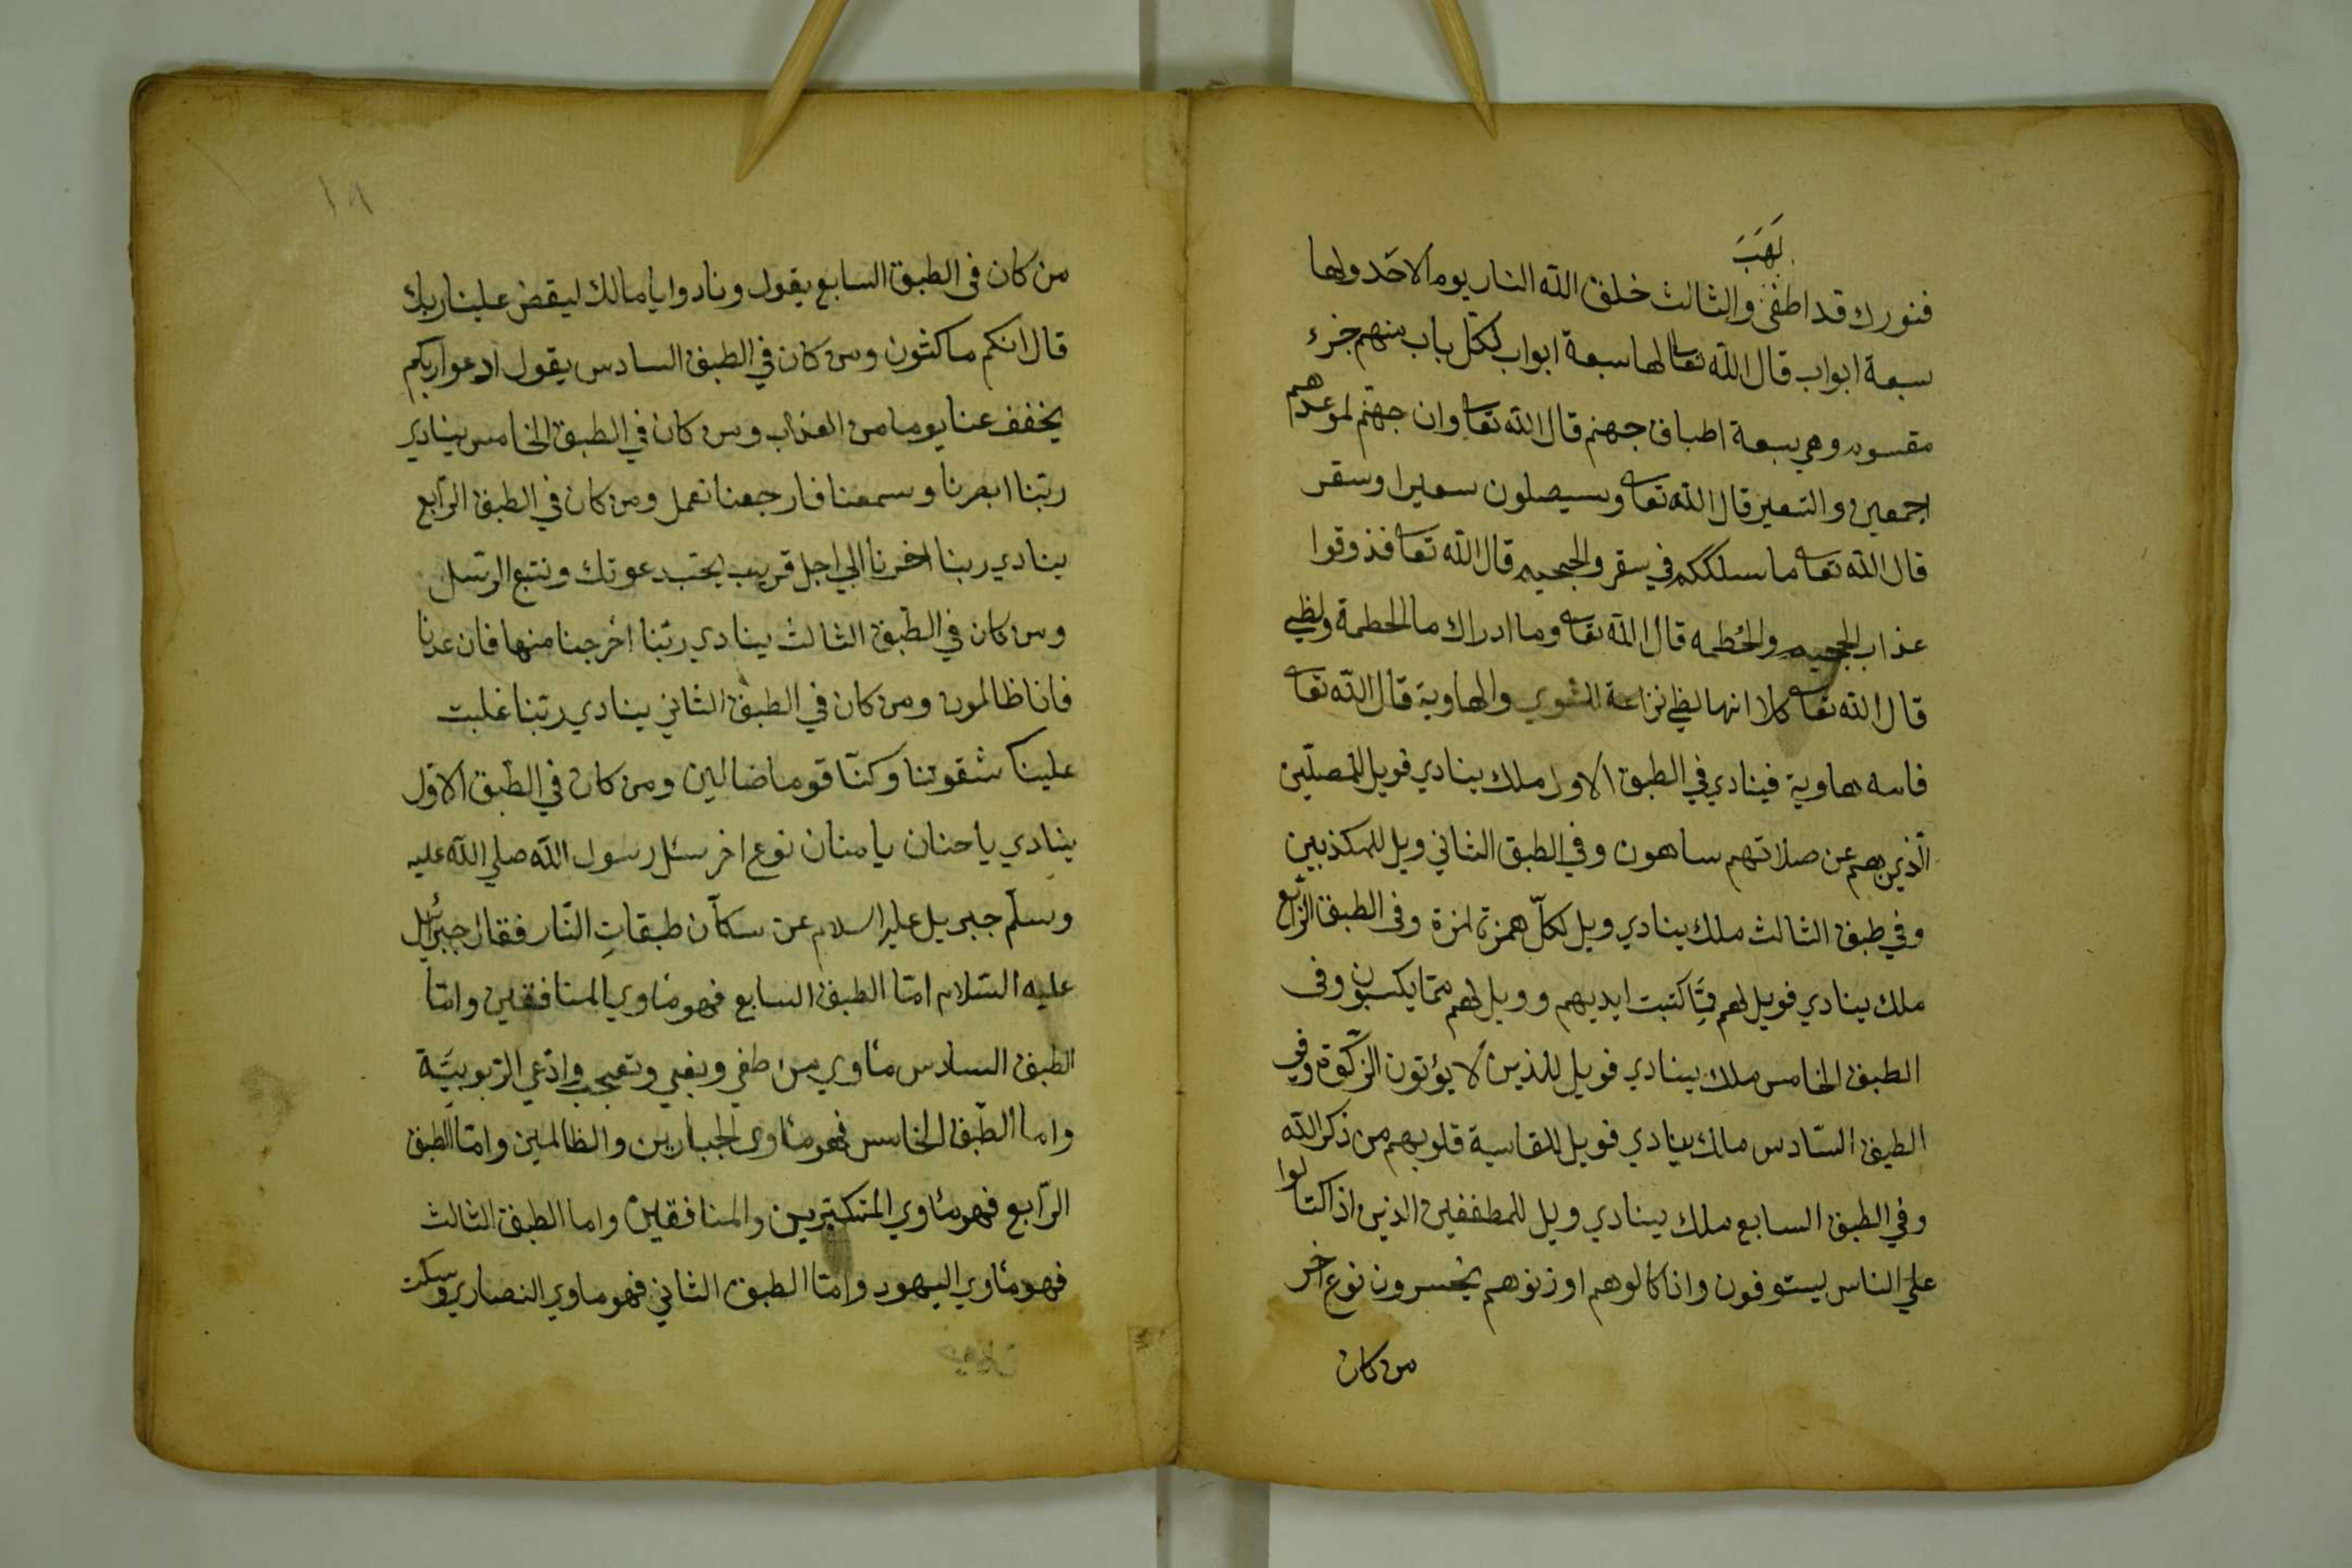 لهب
فنورك قد اطفى والثالث خلق الله النار يوم الاحد ولها
سبعة ابواب قال الله تعا لها سبعة ابواب لكل باب منهم جزء
مقسوم وهي سبعة اطباق جهنم قال الله تعا وان جهنم لموعدهم
اجمعين والسعير قال الله تعا وسيصلون سعيرا وسقر
قال الله تعا ما سلككم في سقر والجحيم قال الله تعا فذوقوا
عذاب الجحيم والحُطمه قال الله تعا وما ادراك ما الحطمة ولظي
قال الله تعا كلا انها لظي نزاعة للشوي والهاوية قال الله تعا
فامه هاوية فينادي في الطبق الاول ملك ينادي فويل للمصلّين
الّذين هم عن صلاتهم ساهون وفي الطبق الثاني ويل للمكذبين
وفي طبق الثالث ملك ينادي ويل لكلّ همزة لمزة وفى الطبق الرّابع
ملك ينادي فويل لهم ممّا كتبت ايديهم وويل لهم ممّا يكسبون وفى
الطبق الخامس ملك ينادي فويل للذين لا يؤتون الزّكوة وفي
الطبق السّادس ملك ينادي فويل للقاسية قلوبهم من ذكر الله
وفي الطبق السابع ملك ينادي ويل للمطففين الذين اذا اكتالوا
علي الناس ليستوفون واذا كالوهم او زنوهم يخسرون نوع اخر
من كان
١٩
من كان فى الطبق السابع يقول ونادوا يا مالك ليقض علينا ربك
قال انكم ماكثون ومن كان في الطبق السادس يقول ادعوا ربكم
يخفف عنا يوما من العذاب ومن كان في الطبق الخامس ينادي
ربّنا ابصرنا وسمعنا فارجعنا نعمل ومن كان في الطبق الرّابع
ينادي ربنا اخرنا الي اجل قريب نجتب دعوتك ونتبع الرّسل
ومن كان في الطّبق الثالث ينادي ربّنا اخرجنا منها فان عدنا
فانا ظالمون ومن كان في الطبق الثاني ينادي ربّنا غلبت
علينا شقوتنا وكنّا قوما ضالين ومن كان في الطّبق الاوّل
ينادي يا حنان يا منان نوع اخر سئل رسول الله صلي الله عليه
وسلّم جبريل عليه السلام عن سكاّن طبقاتِ النّار فقال جبرئيل
عليه السّلام امّا الطبق السابع فهو مأوي المنافقين وامّا
الطبق السادس مأوي من طغي وبغي وتعجب وادّعي الرّبوبيَّة
واما الطّبق الخامس فهو مأوى الجبارين والظالمين وامّا الطبق
الرّابع فهو مأوي المتكبّرين والمنافقين واما الطبق الثالث
فهو مأوي اليهود وامّا الطبق الثاني فهو ماوي النصاري وسكت